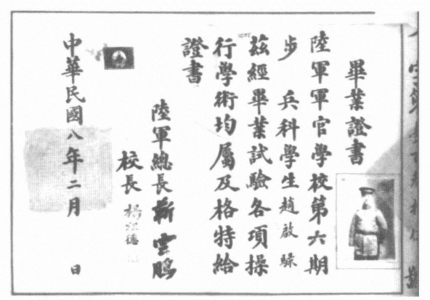 畢業證書
陸軍軍官學校第六期
步兵科學生趙啟騄
茲經畢業試驗各項操
行學術均屬及格特給
證書
陸軍總長靳雲鵬
校長楊祖德
中華民國八年二月 日